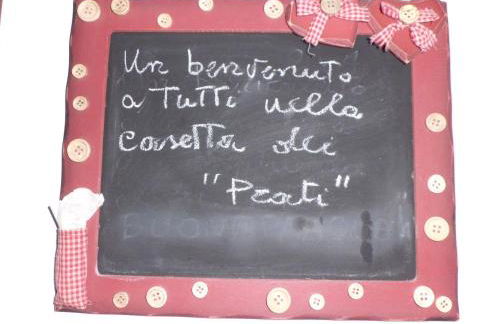 Un benvenuto
a tutti nella
casetta dei
"Prati"